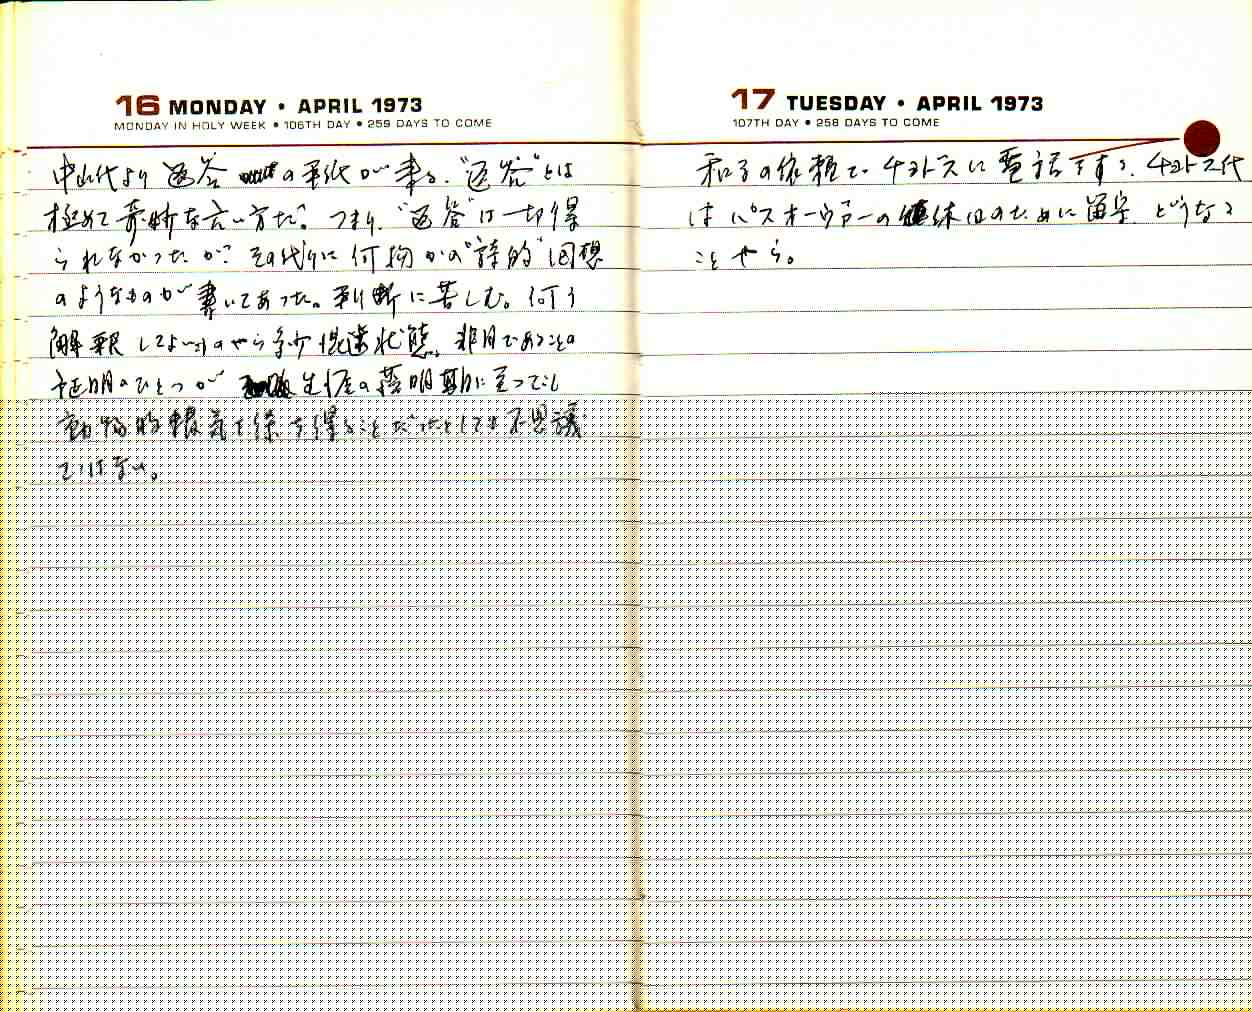 16 MONDAY • APRIL 1973
MONDAY IN HOLY WEEK • 106TH DAY • 259 DAYS TO COME
より返答の手紙が来る。“返答”とは
極めて奇妙な言い方だ。つまり、“返答”は一切得
られなかったが、その代りに何物かの“詩的”回想
のようなものが書いてあった。判断に苦しむ。何う
解釈してよいものやら多少混迷状態。非月であることの
証明のひとつが 生涯の 明期に至っても
動物的 気を保ち得ることだったとしても不思議
ではない。
17 TUESDAY • APRIL 1973
107TH DAY • 258 DAYS TO COME
和子の依頼で、チヨトスに電話する。チヨトス代
はパスオーヴァーの休日のために留守。どうなる
ことやら。